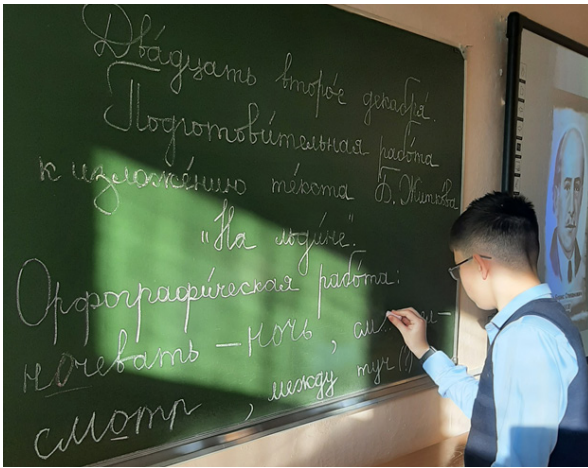 Два́дцать второ́е декабря́.
Подготови́тельная рабо́та
к изложе́нию те́кста Б. Житко́ва
"На льди́не".
Орфографи́ческая рабо́та:
ночевать – ночь,
смотр, между туч (!)